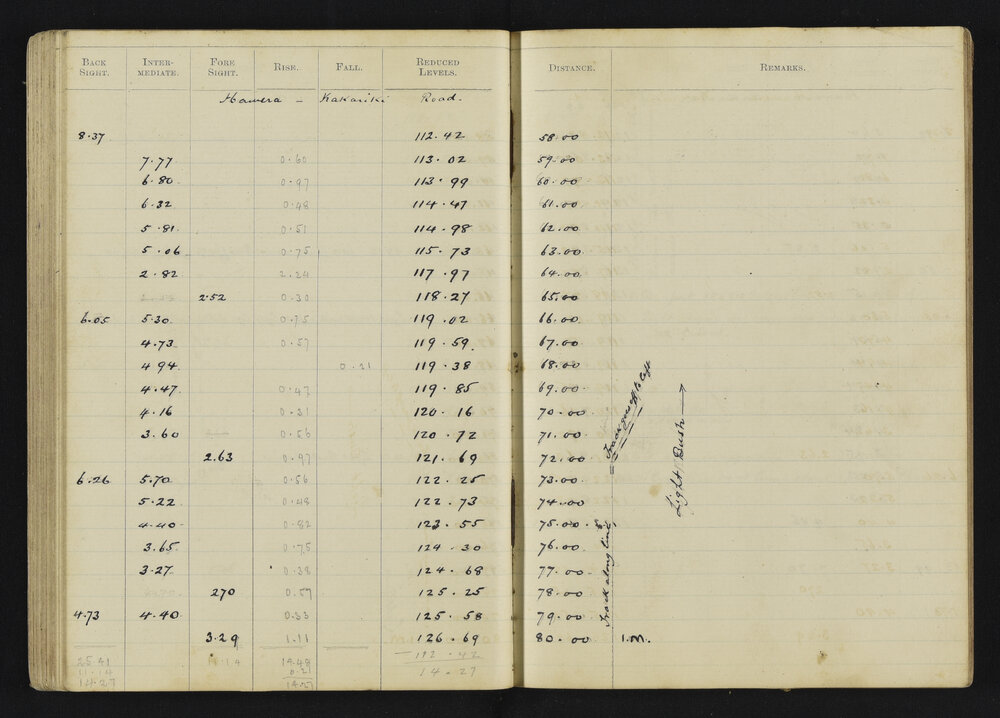 BACK SIGHT. INTER-MEDIATE. FORE SIGHT. RISE. FALL. REDUCED LEVELS. DISTANCE. REMARKS.
Hawera - Kakariki Road.
8.37 112.42 58.00
7.77 0.60 113.02 59.00
6.80 0.97 113.99 60.00
6.32 0.48 114.47 61.00
5.81 0.51 114.98 62.00
5.06 0.75 115.73 63.00
2.82 2.24 117.97 64.00
2.52 0.30 118.27 65.00
6.05 5.30 0.75 119.02 66.00
4.73 0.57 119.59 67.00
4.94 0.21 119.38 68.00
4.47 0.47 119.85 69.00
4.16 0.31 120.16 70.00
3.60 0.56 120.72 71.00
2.63 0.97 121.69 72.00
6.26 5.70 0.56 122.25 73.00
5.22 0.48 122.73 74.00
4.40 0.82 123.55 75.00
3.65 0.75 124.30 76.00
3.27 0.38 124.68 77.00
270 0.57 125.25 78.00
4.73 4.40 0.33 125.58 79.00
3.29 1.11 126.69 80.00 1.M.
25.41 11.14 14.48 - 112.42
11.14 0.21 14.27
14.27 14.27
Track along line
Track goes off to left
Light Bush →